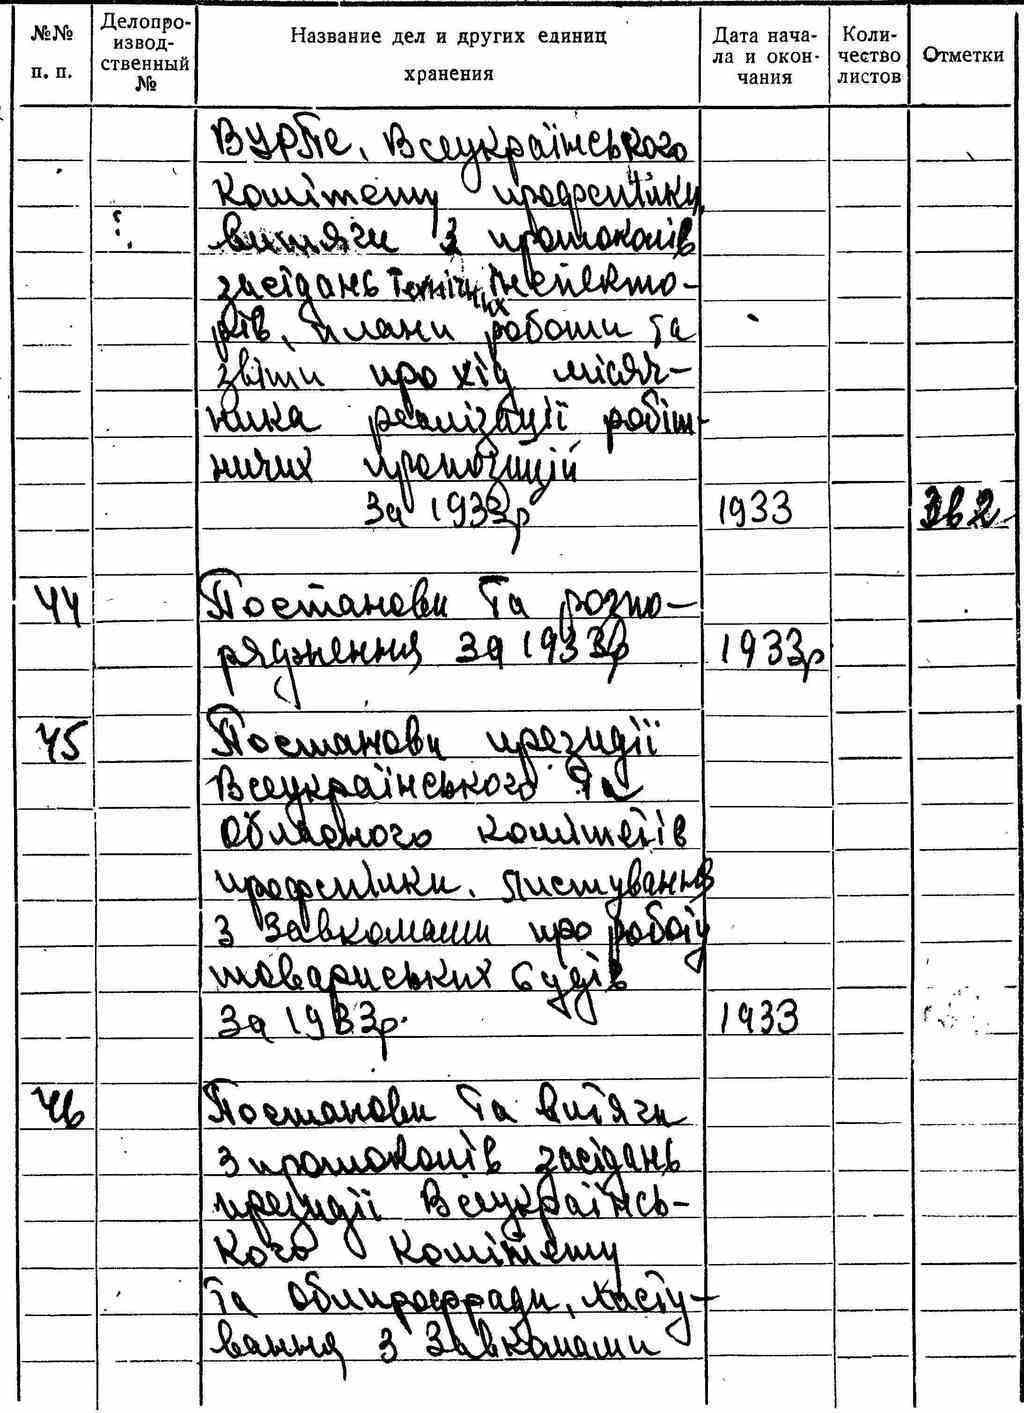 №№ п. п.
Делопро-
извод-
ственный
№
Название дел и других единиц
хранения
Дата нача-
ла и окон-
чания
Коли-
чество
листов
Отметки
ВУРПе, Всеукраїнського
Комітету профспілки,
витяги з протоколів
засідань технічних інспекто-
рів, плани роботи та
звіти про хід місяч-
ника реалізації робіт-
ничих пропозицій
за 1933р 1933
44 Постанови та розпо-
рядження за 1933р 1933р
45 Постанови президії
Всеукраїнського та
Обласного комітетів
профспілки. Листування
з Завкомами про роботу
товариських судів
за 1933р. 1933
46 Постанови та витяги
з протоколів засідань
президії Всеукраїнсь-
кого комітету
та облпрофради, листу-
вання з Завкомами